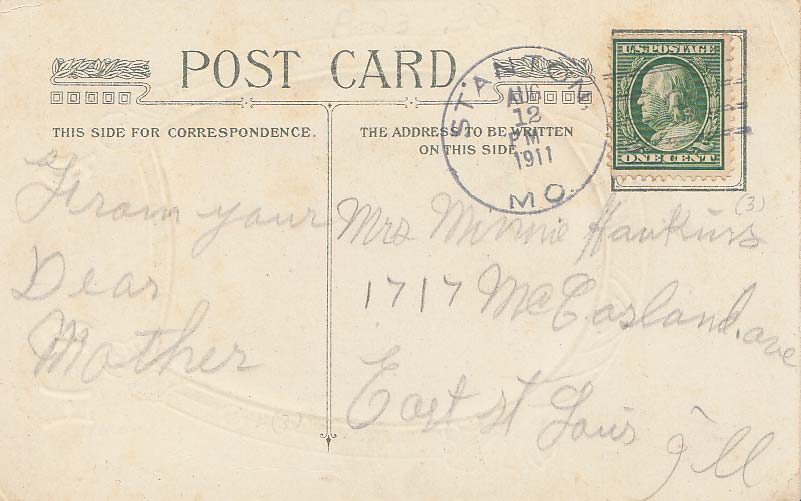 POST CARD
THIS SIDE FOR CORRESPONDENCE.
THE ADDRESS TO BE WRITTEN
ON THIS SIDE
STANTON,
AUG
12
PM
1911
MO.
U.S. POSTAGE
ONE CENT
From your
Dear
Mother
(3)
Mrs Minnie Hawkins
1717 McCasland. ave
East st Louis
Ill